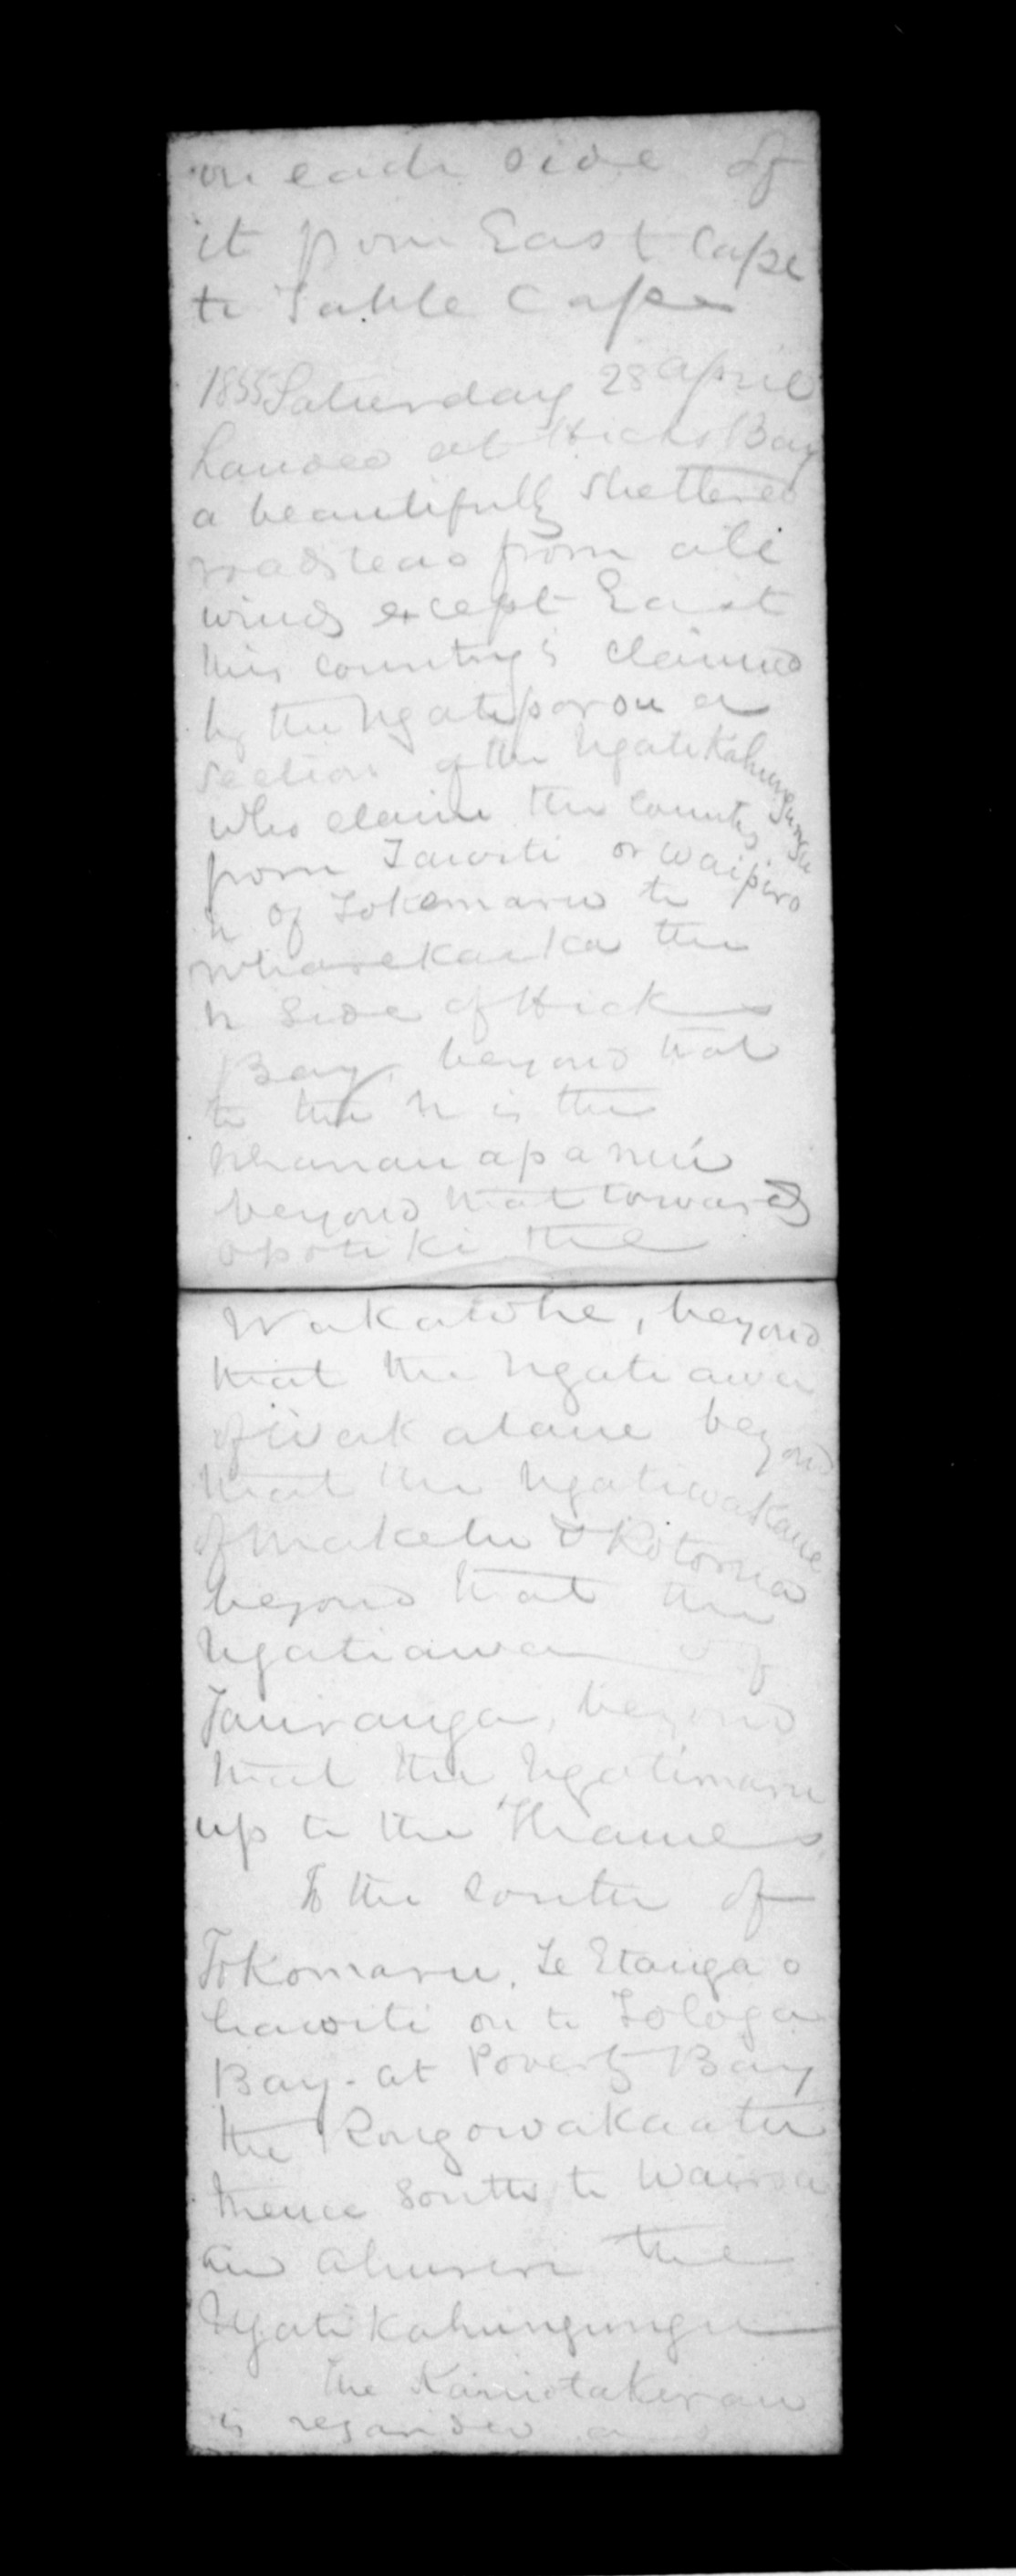 on each side of
it from East Cape
to Table Cape
1855 Saturday 28 April
Landed at Hicks Bay
a beautifully sheltered
roadstead from all
winds except East
this country is claimed
by the Ngatiporou a
section of the NgatiKahungungu
who claim the country
from Tawiti or Waipiro
N of Tokomaru to
Wharekaika the
N side of Hicks
Bay, beyond that
to the N is the
Whanau apanui
beyond that towards
opotiki the
Wakatohe, beyond
that the Ngatiawa
of Wakatane beyond
that the Ngatiwakaue
of Maketu & Rotorua
beyond that the
Ngatiawa of
Tauranga, beyond
that the Ngatimaru
up to the Thames.
To the South of
Tokomaru, Te Etanga o
hawiti on to Tologa
Bay - at Poverty Bay
the Rongowakaatu
thence South to Wairoa
and Ahuriri the
Ngatikahungungu
The Kaniotakirau
is regarded as